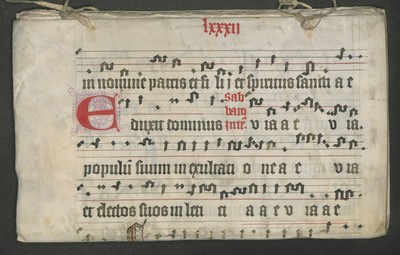 lxxxii
in nomine patris et fi li j et spiritus sancti a e
Sab
bato
Eduxit dominus intr. v ia a e v ia.
populū suum in exultati o ne a e v ia
et electos suos in leti ci a a e v ia a e